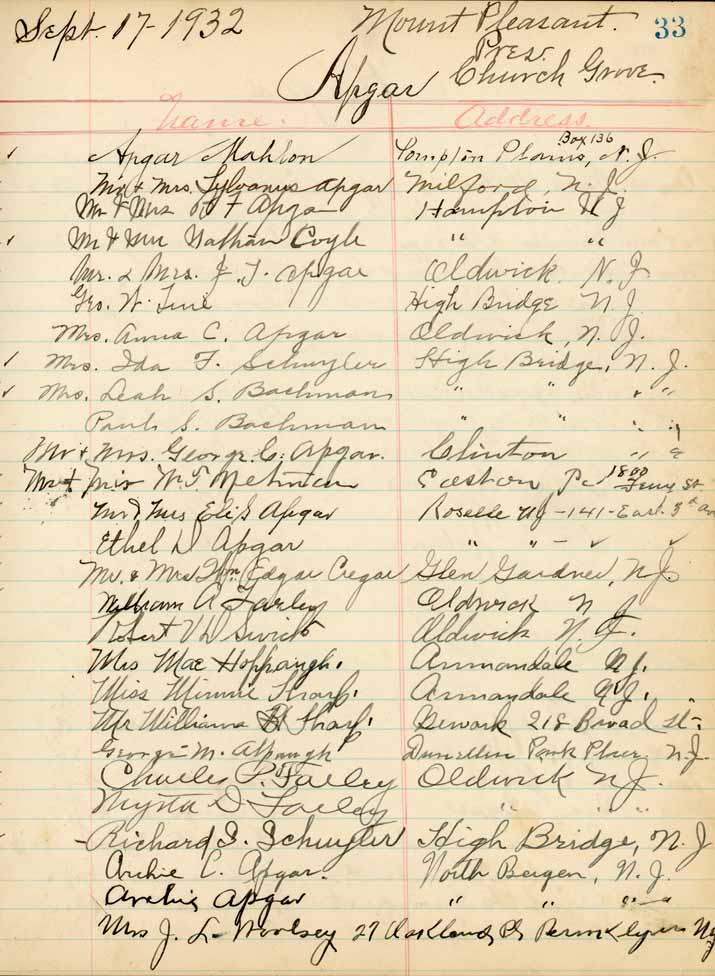 Sept. 17-1932 Mount Pleasant. 33
Pres.
Apgar Church Grove.
Name. Address.
Box 136
Apgar Mahlon Pompton Plains, N. J.
Mr & Mrs. Sylvanus Apgar Milford, N. J.
Mr & Mrs Apgar Hampton N J
Mr & Mrs Nathan Coyle " "
Mr. & Mrs. J. T. Apgar Oldwick N. J.
Geo. W. High Bridge N. J.
Mrs. Anna C. Apgar Oldwick, N. J.
Mrs. Ida F. Schuyler High Bridge, N. J.
Mrs. Leah S. Bachman " " " "
Paul S. Bachman " " " "
Mr & Mrs. George C. Apgar. Clinton " "
Mr & Mrs W. Easton Pa 1800 St
Mr & Mrs Eli S Apgar Roselle NJ - 141 - East 3rd Ave
Ethel D Apgar " " - " "
Mr. & Mrs Wm Edgar Cregar Glen Gardner, N.J.
William A Farley Oldwick N J
Robert Oldwick N. J.
Mrs Mae Hoppaugh. Annandale N.J.
Miss Minnie Sharp. Annandale N.J.
Mr William H Sharp. Newark 218 Broad St.
George M. Alpaugh Dunellen Park Place N.J.
Charles P. Farley Oldwick N.J.
Myrta D Farley " " "
Richard S. Schuyler High Bridge, N. J
Archie C. Apgar. North Bergen, N. J.
Archie Apgar " " "
Mrs J. L. Woolsey 27 Oakland Pl NJ